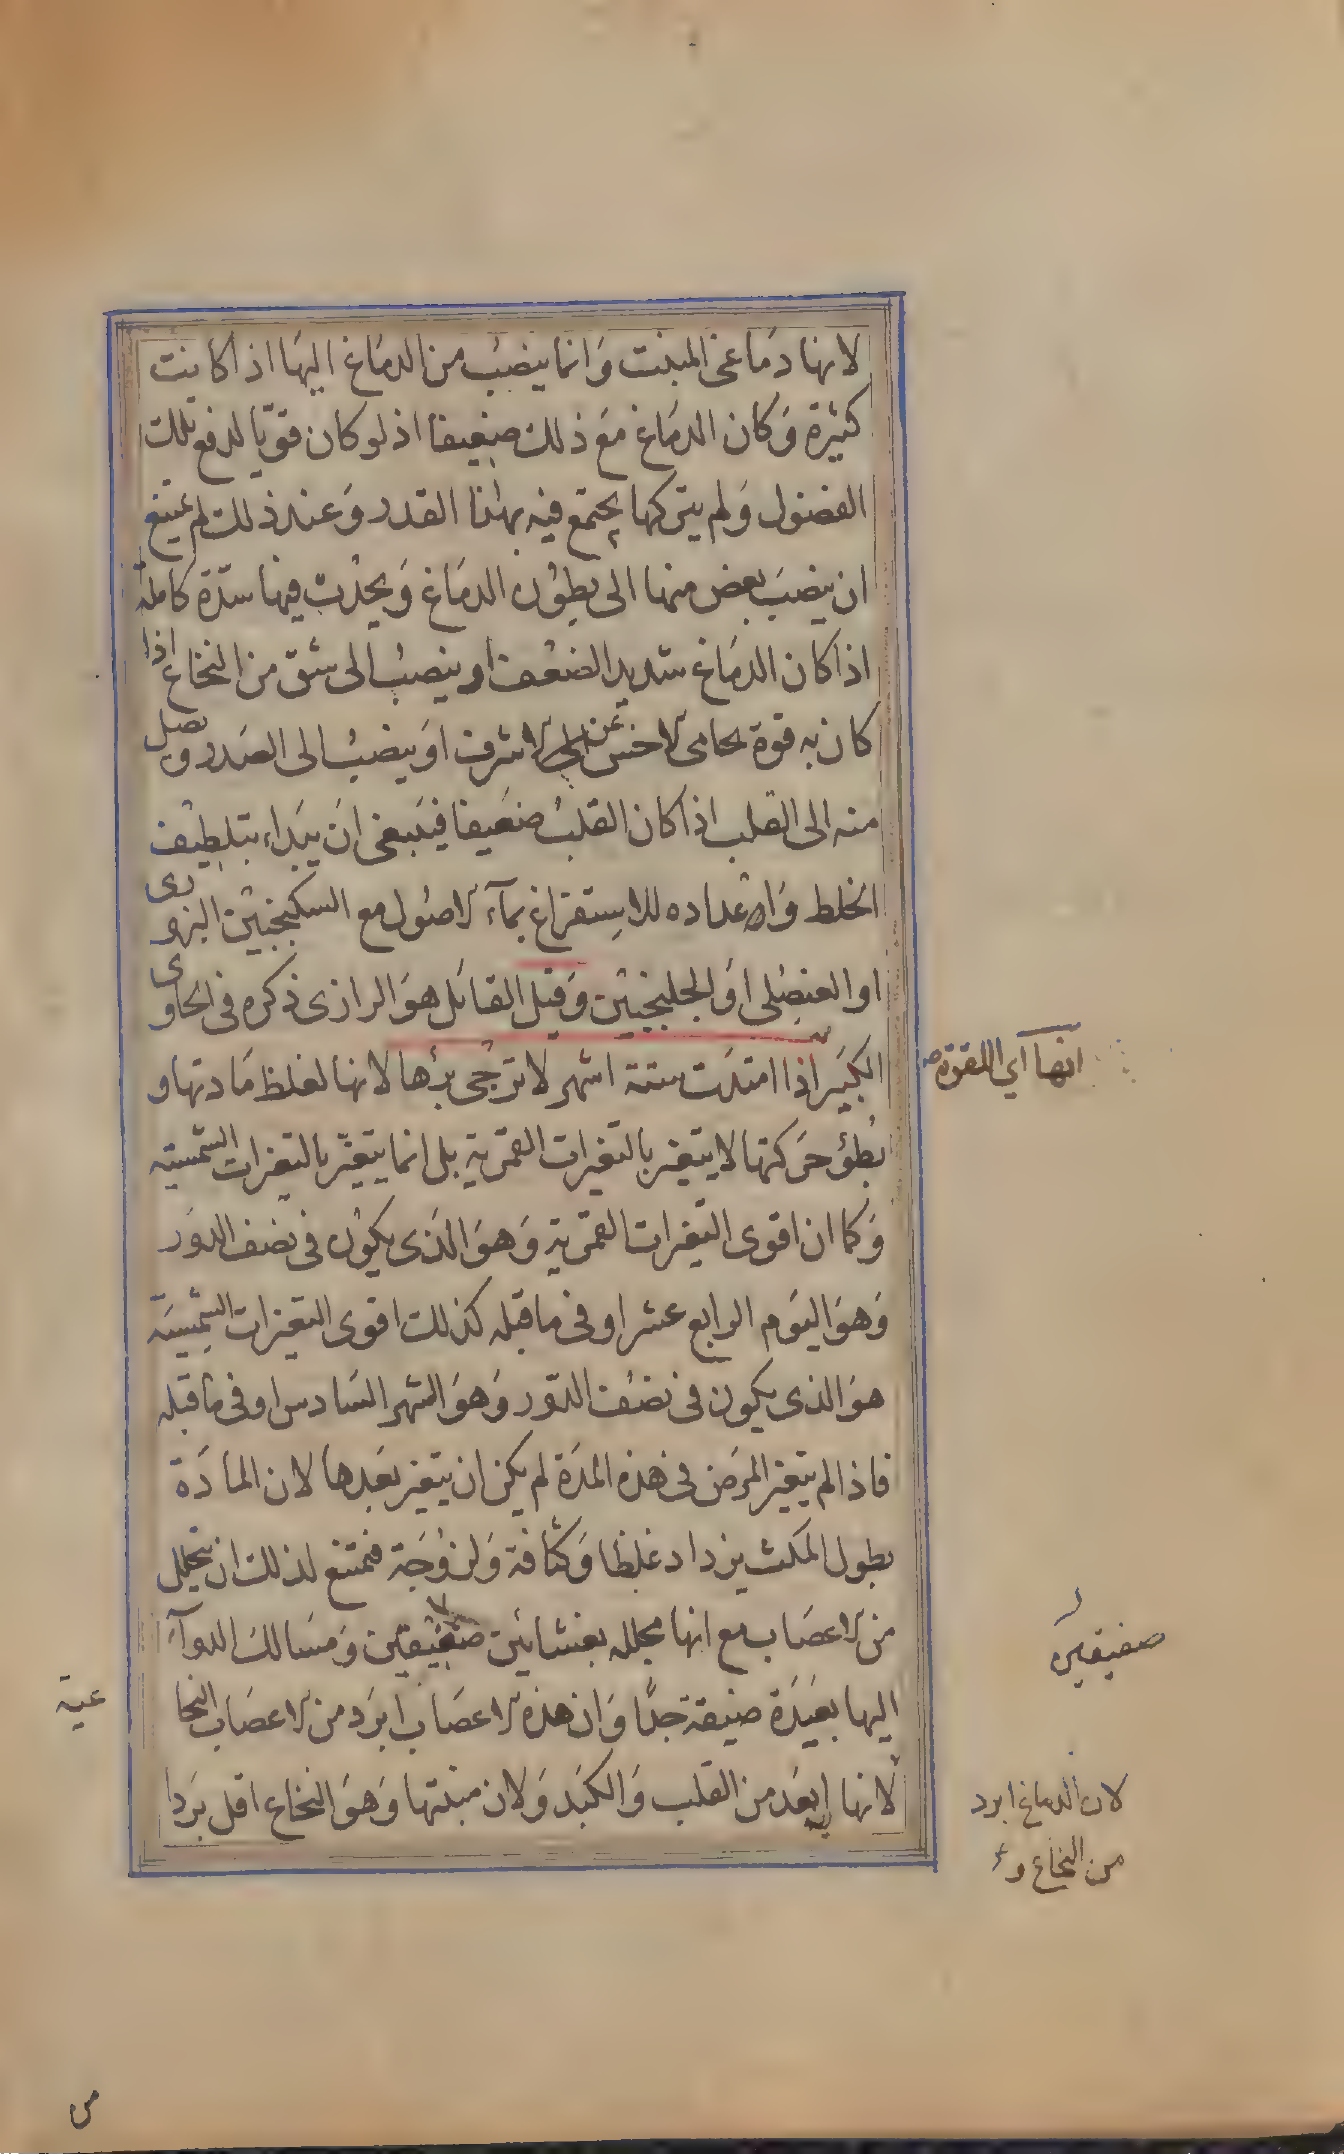 لانها دماغى المبنت وانما ينصب من الدماغ اليها اذا كانت
كثيرة وكان الدماغ مع ذلك ضعيفا اذ لو كان قويا لدفع تلك
الفضول ولم يتركها يجتمع فيه بهذا القدر وعند ذلك لم يمتنع
ان ينصب بعض منها الى بطون الدماغ ويحدث فيها سدة كاملة
اذا كان الدماغ شديد الضعف او ينصب الى شق من النخاع اذا
كان به قوة يحامى الاخس عن الاشرف او ينصب الى الصدر ويصل
منه الى القلب اذا كان القلب ضعيفا فينبغى ان يبداء بتلطيف
الخلط واعداده للاستفراغ بمآء الاصول مع السكنجبين البزورى
او العنصلى او الجلنجبين وقيل القائل هو الرازى ذكره فى الحاوى
الكبير اذا امتدت ستة اشهر لا ترجى برؤها لانها لغلظ مادتها و
بطؤ حركتها لا يتغير بالتغيرات القمرية بل انما يتغير بالتغيرات الشمسية
وكما ان اقوى التغيرات القمرية وهو الذى يكون فى نصف الدور
وهو اليوم الرابع عشر او فى ما قبله كذلك اقوى التغيرات الشمسية
هو الذى يكون فى نصف الدور وهو الشهر السادس او فى ما قبله
فاذا لم يتغير المرض فى هذه المدة لم يكن ان يتغير بعدها لان المادة
بطول المكث يزداد غلظا وكثافة ولزوجة فيمتنع لذلك ان يتحلل
من الاعصاب مع انها مجلله بغشائين ضعيفتين ومسالك الدوآء
اليها بعيدة ضيقة جدا وان هذه الاعصاب ابرد من الاعصاب النخا
عية
لانها ابعد من القلب والكبد ولان مبنتها وهو النخاع اقل بردا
انها اي اللقوة صح
صفيقين
لان الدماغ ابرد
من النخاع و
من